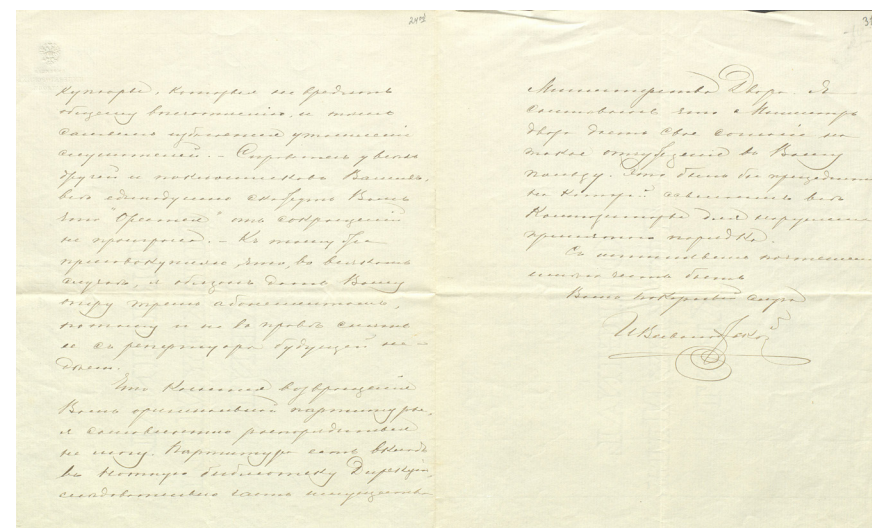 купюры, которыя не вредятъ
общему впечатлѣнію, и тѣмъ
самымъ избавляютъ утомленія
слушателей. – Спросите у всѣхъ
друзей и поклонниковъ Вашихъ,
всѣ единодушно скажутъ Вамъ
что "Орестея" отъ сокращеній
не проиграла. – Къ тому же
присовокупляю, что, во всякомъ
случаѣ, я обязанъ дать Вашу
оперу тремъ абонементамъ,
потому и не въ правѣ снять
ее съ репертуара будущей не-
дѣли.
Что касается возвращенія
Вамъ оригинальной партитуры,
я самовластно распорядиться
не могу. Партитура есть вкладъ
въ нотную библіотеку Дирекціи,
слѣдовательно часть имущества
Министерства Двора. Я
сомнѣваюсь что Министръ
Двора далъ свое согласіе на
такое отчужденіе въ Вашу
пользу. Это было бы прецедентъ
на который ссылались всѣ
Композиторы для нарушенія
принятаго порядка.
Съ истиннымъ почтеніемъ
имѣю честь быть
Вашъ покорный слуга
ИВсеволожской